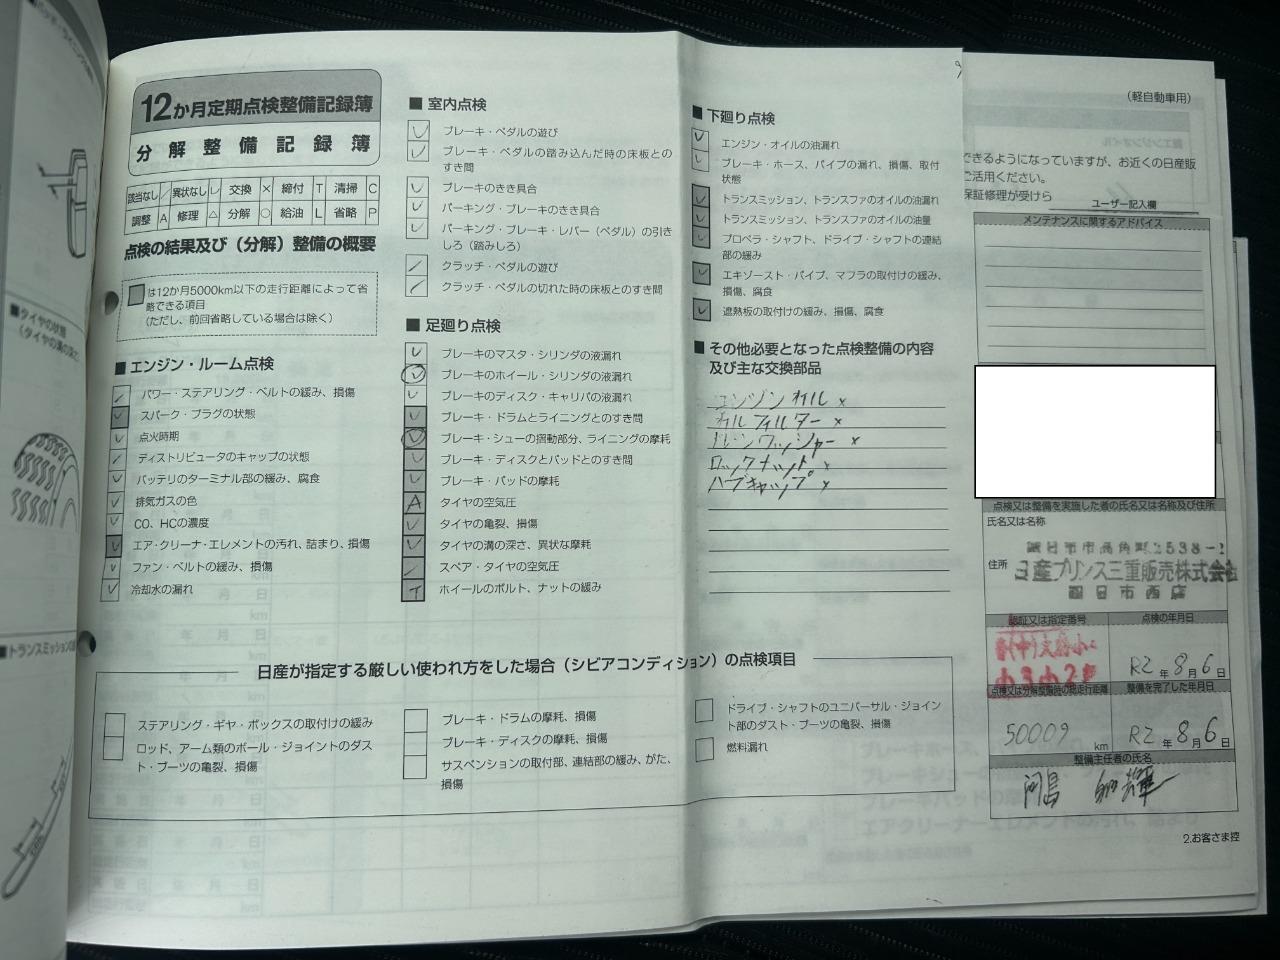 12か月定期点検整備記録簿
分解整備記録簿
該当なし ／ 異状なし レ 交換 × 締付 T 清掃 C
調整 A 修理 △ 分解 ○ 給油 L 省略 P
点検の結果及び（分解）整備の概要
は12か月5000km以下の走行距離によって省
略できる項目
（ただし、前回省略している場合は除く）
■ エンジン・ルーム点検
パワー・ステアリング・ベルトの緩み、損傷
スパーク・プラグの状態
点火時期
ディストリビュータのキャップの状態
バッテリのターミナル部の緩み、腐食
排気ガスの色
CO、HCの濃度
エア・クリーナ・エレメントの汚れ、詰まり、損傷
ファン・ベルトの緩み、損傷
冷却水の漏れ
■ 室内点検
ブレーキ・ペダルの遊び
ブレーキ・ペダルの踏み込んだ時の床板との
すき間
ブレーキのきき具合
パーキング・ブレーキのきき具合
パーキング・ブレーキ・レバー（ペダル）の引き
しろ（踏みしろ）
クラッチ・ペダルの遊び
クラッチ・ペダルの切れた時の床板とのすき間
■ 足廻り点検
ブレーキのマスタ・シリンダの液漏れ
ブレーキのホイール・シリンダの液漏れ
ブレーキのディスク・キャリパの液漏れ
ブレーキ・ドラムとライニングとのすき間
ブレーキ・シューの摺動部分、ライニングの摩耗
ブレーキ・ディスクとパッドとのすき間
ブレーキ・パッドの摩耗
A タイヤの空気圧
タイヤの亀裂、損傷
タイヤの溝の深さ、異状な摩耗
スペア・タイヤの空気圧
T ホイールのボルト、ナットの緩み
■ 下廻り点検
エンジン・オイルの油漏れ
ブレーキ・ホース、パイプの漏れ、損傷、取付
状態
トランスミッション、トランスファのオイルの油漏れ
トランスミッション、トランスファのオイルの油量
プロペラ・シャフト、ドライブ・シャフトの連結
部の緩み
エキゾースト・パイプ、マフラの取付けの緩み、
損傷、腐食
遮熱板の取付けの緩み、損傷、腐食
■ その他必要となった点検整備の内容
及び主な交換部品
エンジンオイル ×
オイルフィルター ×
ドレンワッシャー ×
ロックナット ×
ハブキャップ ×
日産が指定する厳しい使われ方をした場合（シビアコンディション）の点検項目
ステアリング・ギヤ・ボックスの取付けの緩み
ロッド、アーム類のボール・ジョイントのダス
ト・ブーツの亀裂、損傷
ブレーキ・ドラムの摩耗、損傷
ブレーキ・ディスクの摩耗、損傷
サスペンションの取付部、連結部の緩み、がた、
損傷
ドライブ・シャフトのユニバーサル・ジョイン
ト部のダスト・ブーツの亀裂、損傷
燃料漏れ
（軽自動車用）
できるようになっていますが、お近くの日産販
ご活用ください。
保証修理が受けら
ユーザー記入欄
メンテナンスに関するアドバイス
点検又は整備を実施した者の氏名又は名称及び住所
氏名又は名称
住所
四日市市高角町2538-1
日産プリンス三重販売株式会社
四日市西店
認証又は指定番号
点検の年月日
R2 年 8 月 6 日
点検又は分解整備時の総走行距離
整備を完了した年月日
50009 km
R2 年 8 月 6 日
整備主任者の氏名
2.お客さま控
■タイヤの状態
（タイヤの溝の深さ、
■トランスミッションの